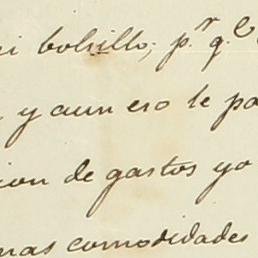 mi bolsillo; p.r q.e
y aun eso le pa
cion de gastos yo
mas comodidades